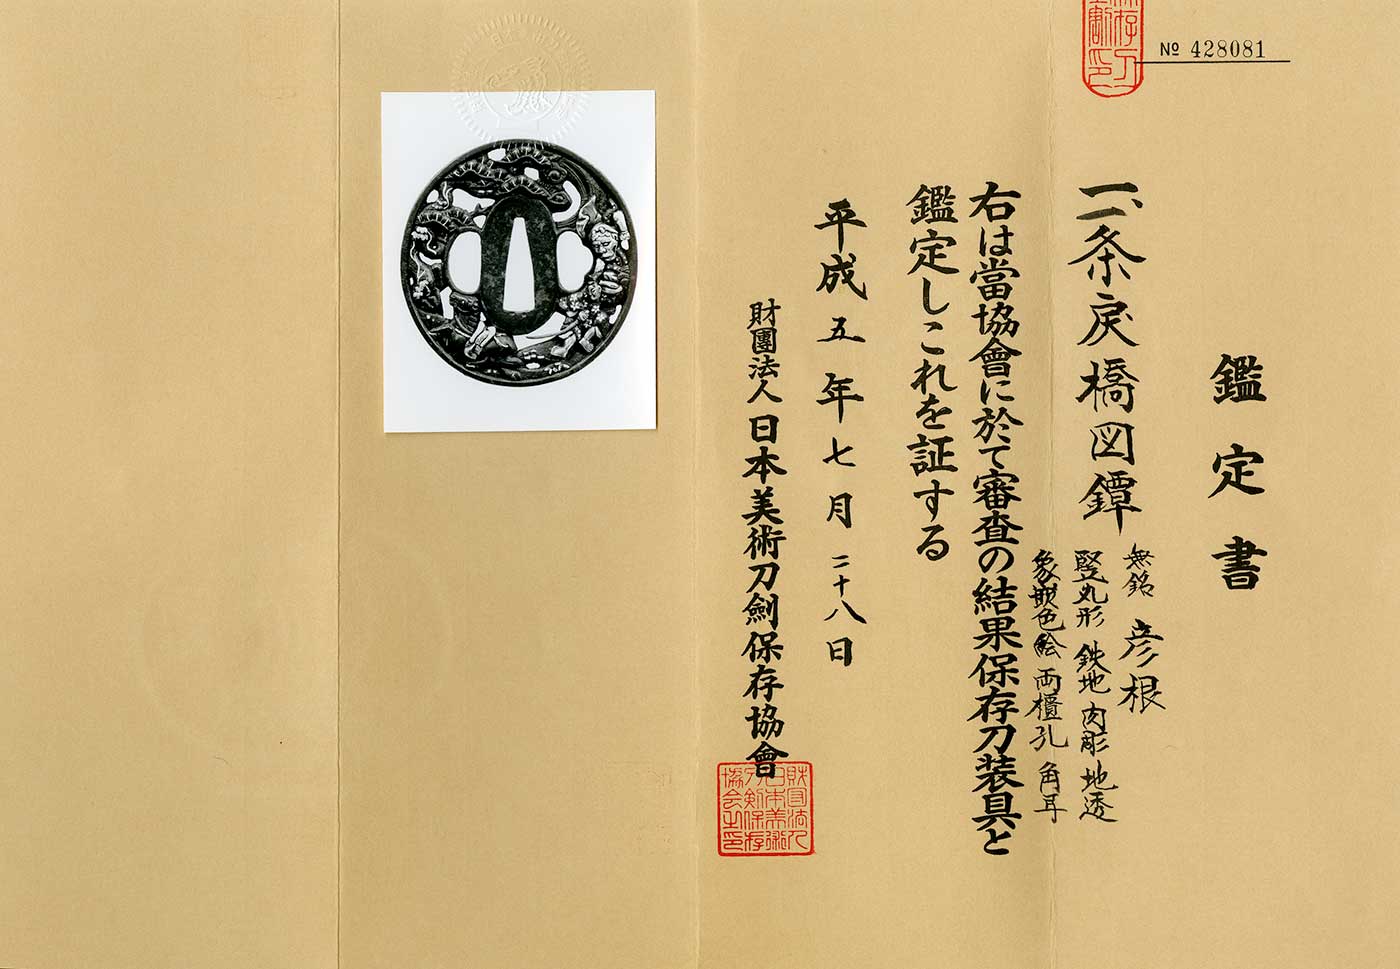 № 428081
鑑定書
一、一条戻橋図鐔
無銘 彦根
竪丸形 鉄地 肉彫 地透
象嵌色絵 両櫃孔 角耳
右は當協會に於て審査の結果保存刀装具と
鑑定しこれを証する
平成五年七月二十八日
財團法人日本美術刀劍保存協會
財団法人
日本美術
刀剣保存
協会之印